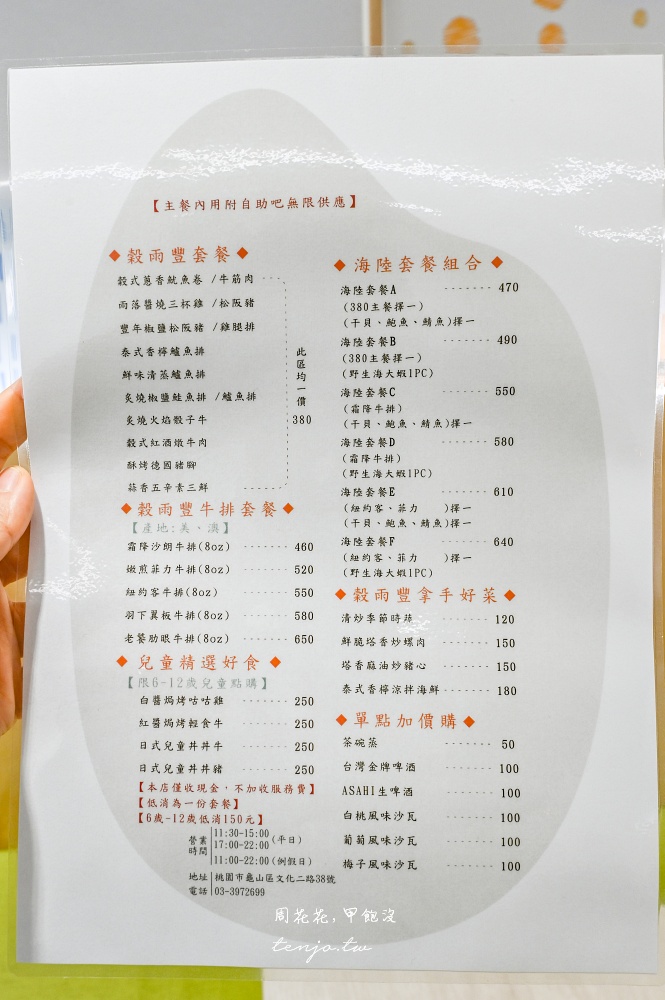 【主餐內用附自助吧無限供應】
◆穀雨豐套餐◆
穀式蔥香魷魚卷 /牛筋肉
雨落醬燒三杯雞 /松阪豬
豐年椒鹽松阪豬 /雞腿排
泰式香檸鱸魚排
鮮味清蒸鱸魚排
炙燒椒鹽鮭魚排 /鱸魚排
炙燒火焰骰子牛
穀式紅酒燉牛肉
酥烤德國豬腳
蒜香五辛素三鮮
此區均一價
380
◆穀雨豐牛排套餐◆
【產地:美、澳】
霜降沙朗牛排(8oz) ------- 460
嫩煎菲力牛排(8oz) ------- 520
紐約客牛排(8oz) ------- 550
羽下翼板牛排(8oz) ------- 580
老饕肋眼牛排(8oz) ------- 650
◆兒童精選好食◆
【限6-12歲兒童點購】
白醬焗烤咕咕雞 ------- 250
紅醬焗烤輕食牛 ------- 250
日式兒童丼丼牛 ------- 250
日式兒童丼丼豬 ------- 250
【本店僅收現金，不加收服務費】
【低消為一份套餐】
【6歲-12歲低消150元】
營業時間
11:30-15:00
17:00-22:00 (平日)
11:00-22:00 (例假日)
地址 桃園市龜山區文化二路38號
電話 03-3972699
◆海陸套餐組合◆
海陸套餐A ------- 470
(380主餐擇一)
(干貝、鮑魚、鯖魚)擇一
海陸套餐B ------- 490
(380主餐擇一)
(野生海大蝦1PC)
海陸套餐C ------- 550
(霜降牛排)
(干貝、鮑魚、鯖魚)擇一
海陸套餐D ------- 580
(霜降牛排)
(野生海大蝦1PC)
海陸套餐E ------- 610
(紐約客、菲力 )擇一
(干貝、鮑魚、鯖魚)擇一
海陸套餐F ------- 640
(紐約客、菲力 )擇一
(野生海大蝦1PC)
◆穀雨豐拿手好菜◆
清炒季節時蔬 ------- 120
鮮脆塔香炒螺肉 ------- 150
塔香麻油炒豬心 ------- 150
泰式香檸涼拌海鮮 ------- 180
◆單點加價購◆
茶碗蒸 ------- 50
台灣金牌啤酒 ------- 100
ASAHI生啤酒 ------- 100
白桃風味沙瓦 ------- 100
葡萄風味沙瓦 ------- 100
梅子風味沙瓦 ------- 100
周花花,甲飽沒
tenjo.tw